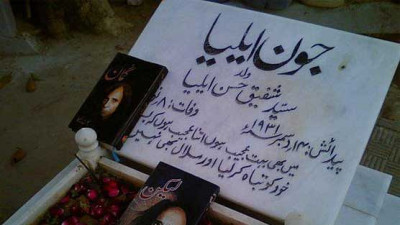 جون ایلیا
ولد
سید شفیق حسن ایلیا
پیدائش: ۱۴ دسمبر ۱۹۳۱ء وفات: ۸
میں بھی بہت عجیب ہوں اتنا عجیب ہوں کہ بس
خود کو تباہ کر لیا اور ملال بھی نہیں
گمان
لیکن